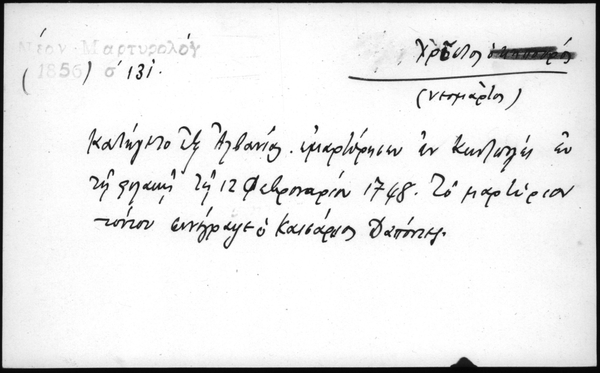 Νέον Μαρτυρολόγ
(1856) σ 131.
Χρῆστος
(νεομάρτυς)
Κατήγετο ἐξ Ἀλβανίας. ἐμαρτύρησεν ἐν Κων/πόλει ἐν
τῇ φυλακῇ τῇ 12 Φεβρουαρίου 1748. Τὸ μαρτύριον
τούτου συνέγραψε ὁ Καισάριος Δαπόντες.